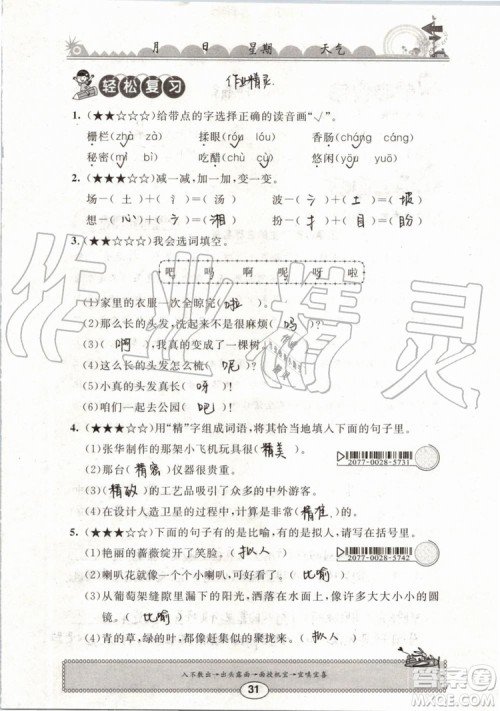 月 日 星期 天气
轻松复习 作业精灵
1.(★★☆☆☆)给带点的字选择正确的读音画“√”。
栅栏(zhà zà) 揉眼(róu lóu) 香肠(cháng cáng)
秘密(mì bì) 吃醋(chù cù) 悠闲(yōu yóu)
2.(★★☆☆☆)减一减,加一加,变一变。
场-(土)+(氵)=(汤) 波-(氵)+(土)=(坡)
想-(心)+(氵)=(湘) 扮-(扌)+(目)=(盼)
3.(★★☆☆☆)我会选词填空。
吧 吗 啊 呢 呀 啦
(1)家里的衣服一次全晾完(啦)。
(2)那么长的头发,洗起来不是很麻烦(吗)?
(3)(啊),我真的变成了一棵树。
(4)那么长的头发怎么梳(呢)?
(5)小真的头发真长(呀)!
(6)咱们一起去公园(吧)!
4.(★★★☆☆)用“精”字组成词语,将其恰当地填入下面的句子里。
(1)张华制作的那架小飞机玩具很(精美)。
2077-0028-5731
(2)那台(精密)仪器很贵重。
(3)(精致)的工艺品吸引了众多的中外游客。
(4)在设计人造卫星的过程中,计算一定要(精准)。
5.(★★★☆☆)下面的句子有的是比喻,有的是拟人,请写在括号里。
(1)艳丽的蔷薇绽开了笑脸。(拟人)
2077-0028-5742
(2)喇叭花就像一个个小喇叭,可好看了。(比喻)
(3)从葡萄架缝隙里漏下的阳光,洒落在水面上,像许多大大小小的圆
镜。(比喻)
(4)青的草,绿的叶,都像赶集似的聚拢来。(拟人)
人不敷出→出头露面→面授机宜→宜嗔宜喜
31
作业精灵
答案圈